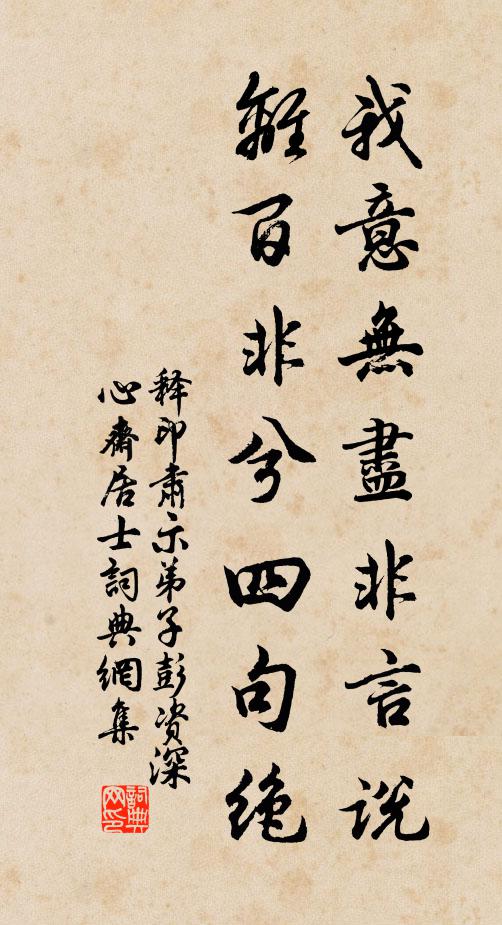 我意無盡非言説
離百非兮四句絶
释印肅示弟子彭资深
心齋居士詞典網集
詞典网印